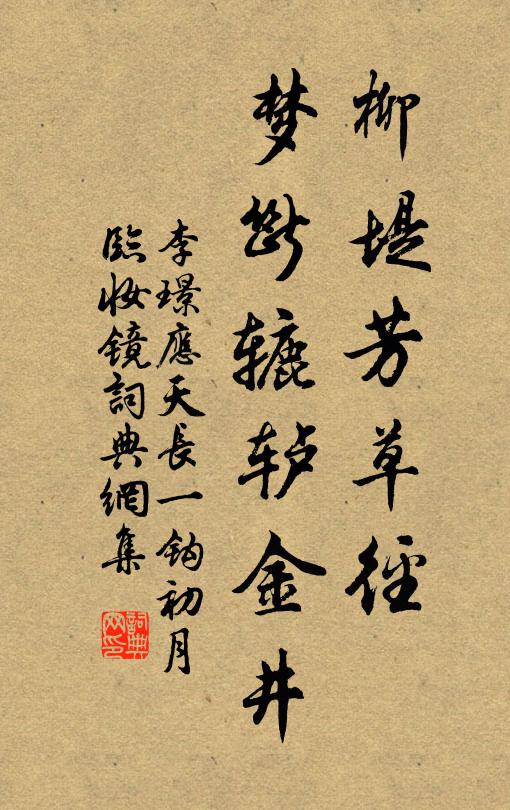 柳堤芳草径
梦断辘轳金井
李璟應天長一鈎初月
臨妝镜詞典網集
詞典網印